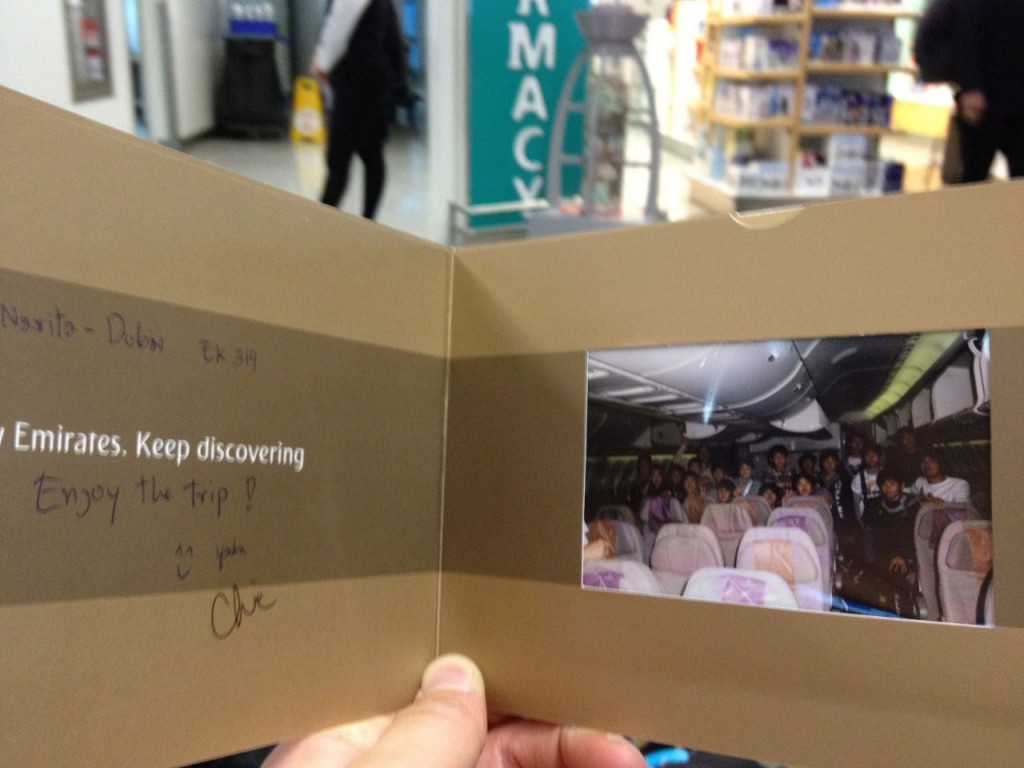 RMACY
Narita - Dubai EK 319
y Emirates. Keep discovering
Enjoy the trip !